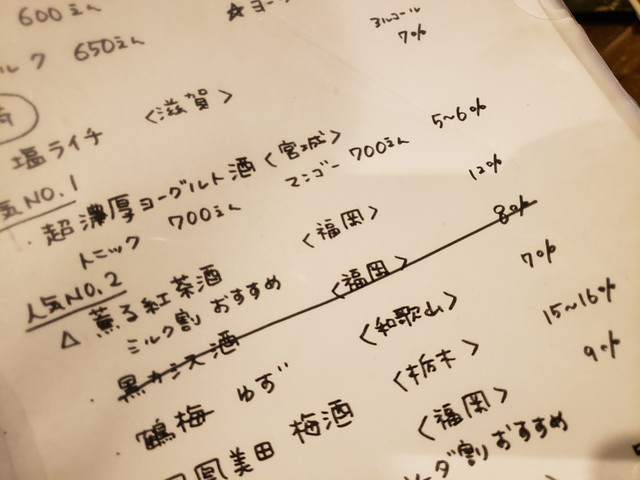 600えん
☆ヨー
アルコール
ルク 650えん 7%
塩ライチ <滋賀>
気NO.1 5~6%
・超濃厚ヨーグルト酒<宮城>
トニック 700えん マンゴー 700えん 12%
人気NO.2
△ 薫る紅茶酒 <福岡> 8%
ミルク割 おすすめ
黒カシス酒 <福岡> 7%
鶴梅 ゆず <和歌山> 15~16%
鳳美田 梅酒 <栃木> 9%
<福岡>
ーダ割 おすすめ